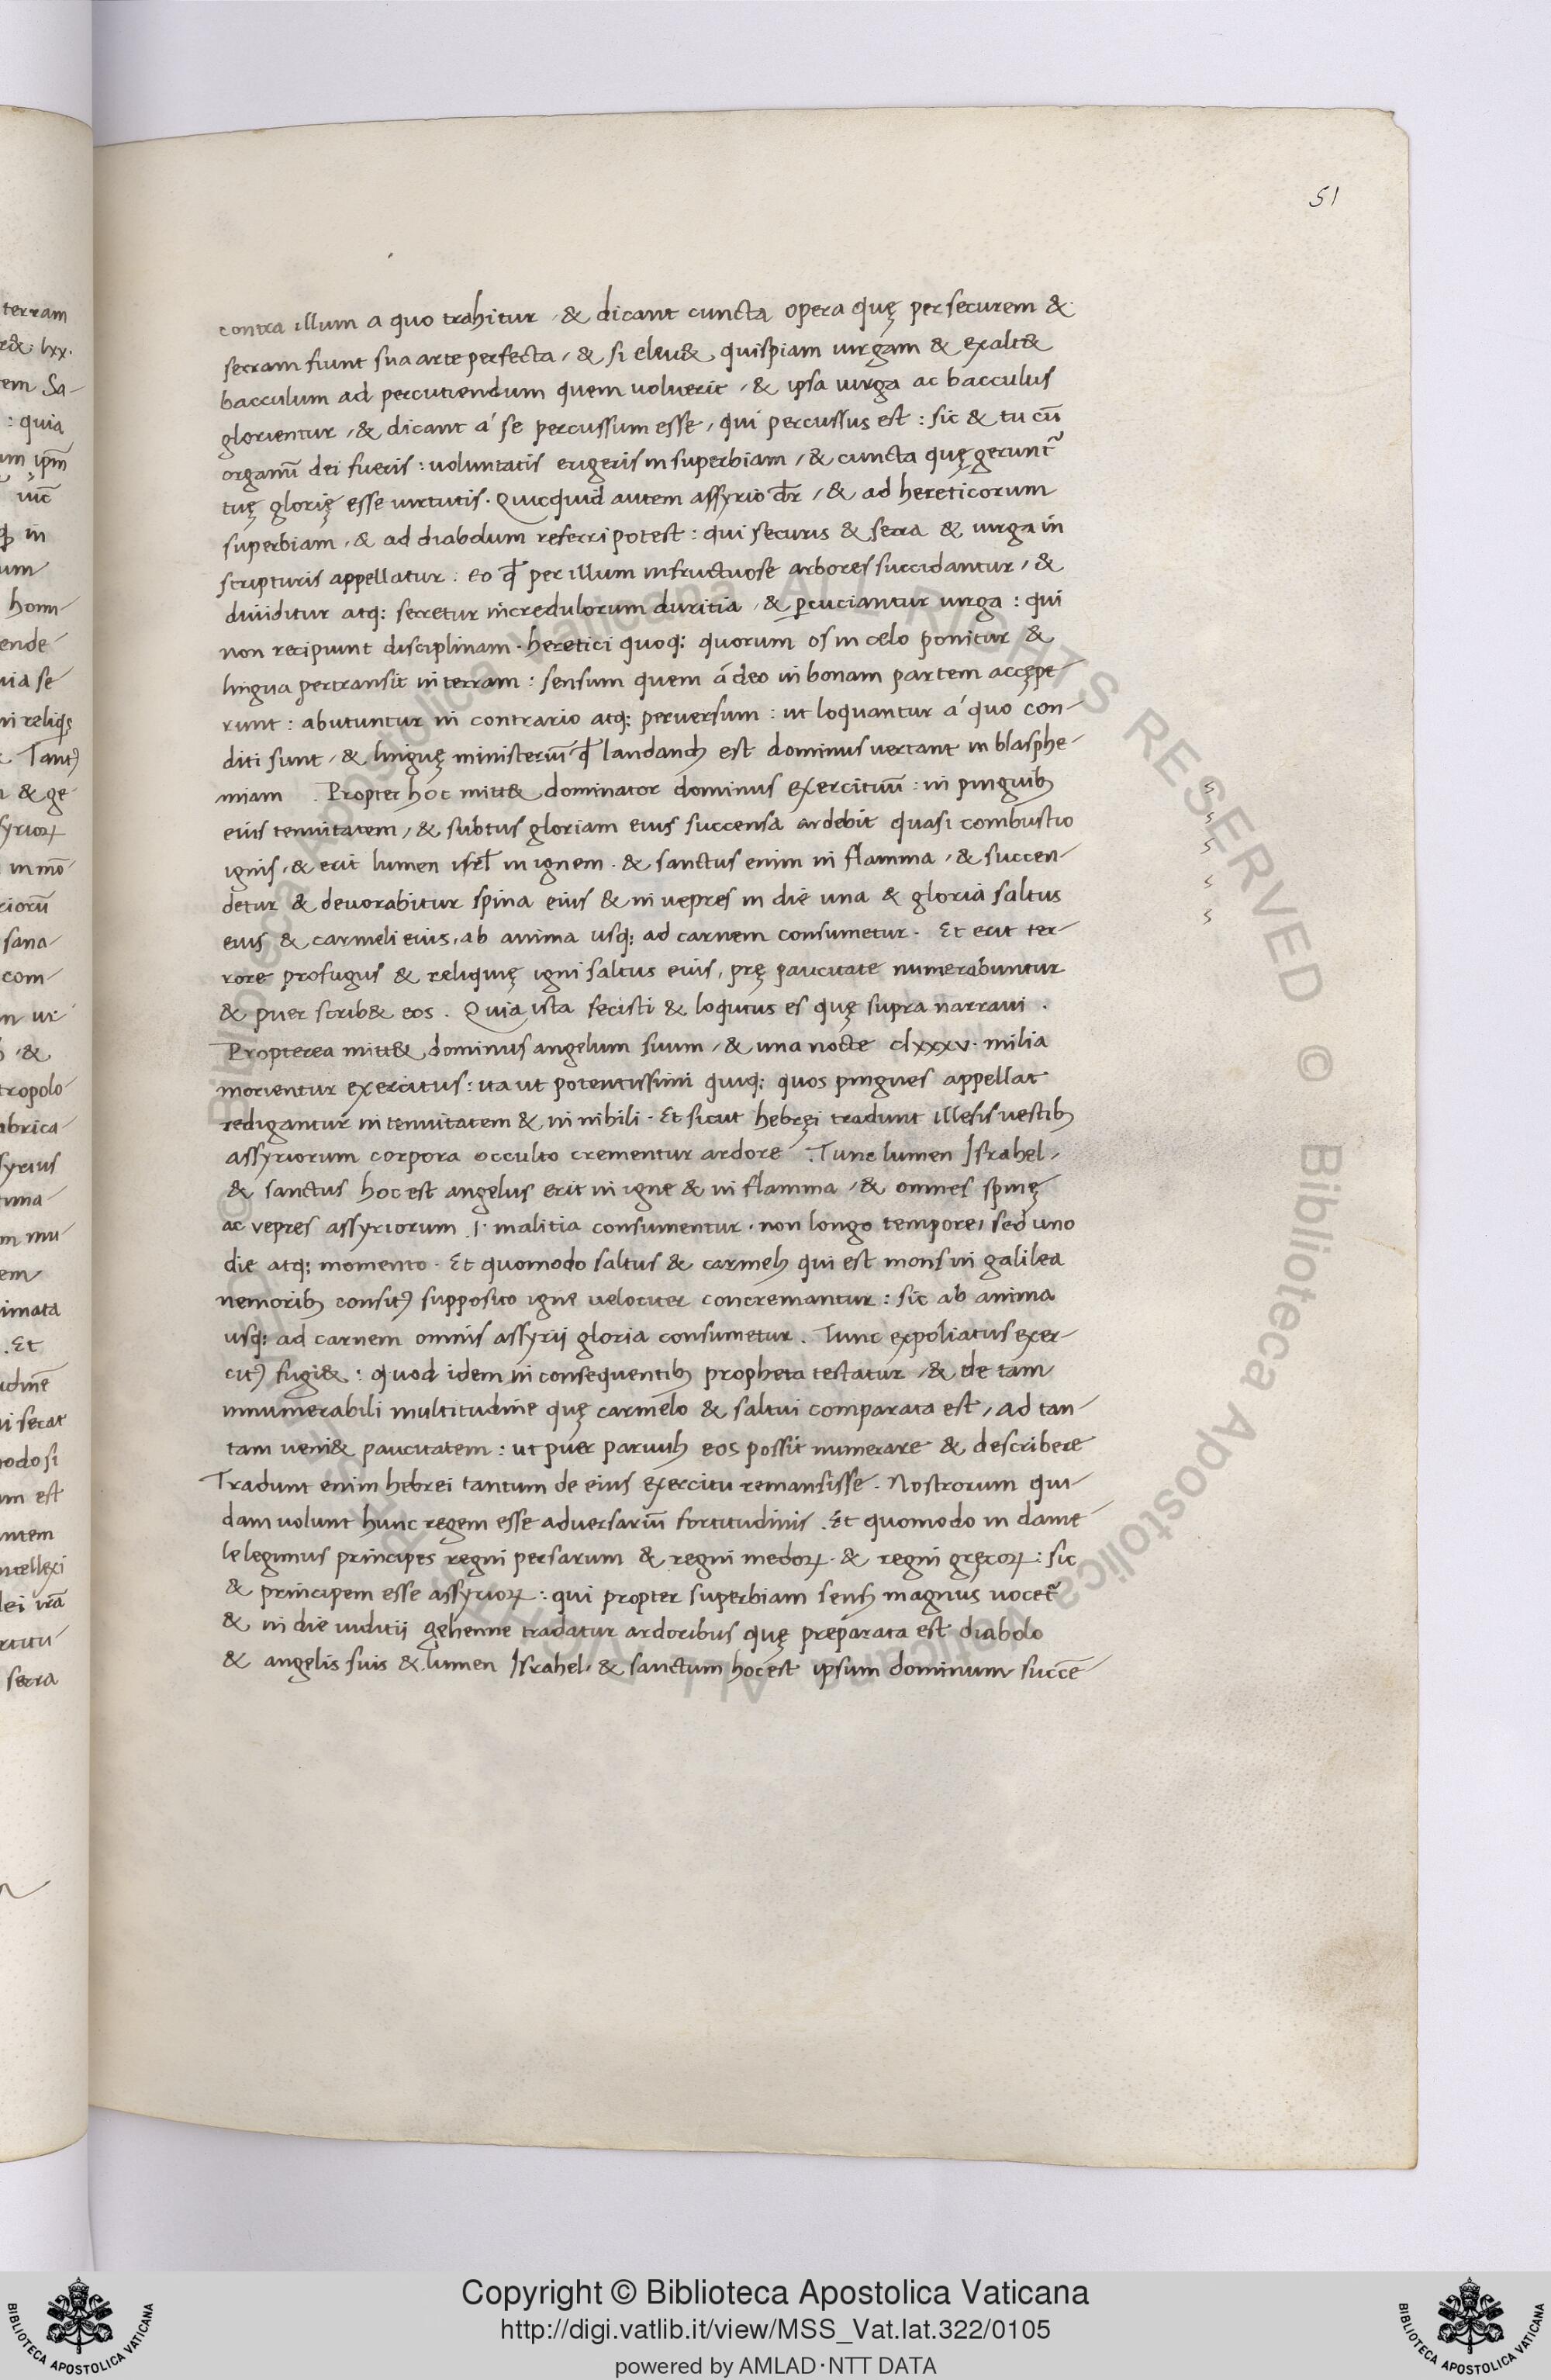 51
contra illum a quo trahitur, & dicant cuncta opera quę per securem &
serram fiunt sua arte perfecta, & si eleu& quispiam uirgam & exalt&
bacculum ad percutiendum quem uoluerit, & ipsa uirga ac bacculus
glorientur, & dicant á se percussum esse, qui percussus est: sic & tu cū
organū dei fueris: uoluntatis erigeris in superbiam, & cuncta quę gerunt᷑
tuę glorię esse uirtutis. Quicquid autem assyrio dr̄, & ad hereticorum
superbiam, & ad diabolum referri potest: qui securis & serra & uirga in
scripturis appellatur: eo ꝙ per illum infructuose arbores succidantur, &
diuiditur atq; serretur incredulorum duritia, & ꝑcuciantur uirga: qui
non recipiunt disciplinam. heretici quoq; quorum os in celo ponitur &
lingua pertransit in terram: sensum quem á deo in bonam partem accępe-
runt: abutuntur in contrario atq; peruersum: ut loquantur á quo con-
diti sunt, & linguę ministeriū ꝙ laudandus est dominus uertant in blasphe-
miam. Propter hoc mitt& dominator dominus exercituū: in pinguibꝫ
eius tenuitatem, & subtus gloriam eius succensa ardebit quasi combustio
ignis, & erit lumen isrł in ignem. & sanctus enim in flamma, & succen-
detur & deuorabitur spina eius & in uepres in die una & gloria saltus
eius & carmeli eius, ab anima usq; ad carnem consumetur. Et erit ter-
rore profugus & reliquię igni saltus eius, prę paucitate numerabuntur
& puer scrib& eos. Quia ista fecisti & loqutus es quę supra narraui.
Propterea mitt& dominus angelum suum, & una nocte clxxxv. milia
morientur exercitus: ita ut potentissimi quiq; quos pingues appellat
redigantur in tenuitatem & in nibili. Et sicut hebręi tradunt illesis uestibꝫ
assyriorum corpora occulto crementur ardore. Tunc lumen Israhel,
& sanctus hoc est angelus erit in igne & in flamma, & omnes spinę
ac vepres assyriorum .i. malitia consumentur. non longo tempore, sed uno
die atq; momento. Et quomodo saltus & carmelꝫ qui est mons in galilea
nemoribꝫ consitꝰ supposito igne uelociter concremantur: sic ab anima
usq; ad carnem omnis assyrij gloria consumetur. Tunc expoliatus exer-
citꝰ fugi&: quod idem in consequentibꝫ propheta testatur, & de tam
innumerabili multitudine quę carmelo & saltui comparata est, ad tan-
tam ueni& paucitatem: ut puer paruulꝫ eos possit numerare & describere
Tradunt enim hebrei tantum de eius exercitu remansisse. Nostrorum qui-
dam uolunt hunc regem esse aduersariū fortitudinis. Et quomodo in danie-
le legimus principes regni persarum & regni medoꝝ. & regni gręcoꝝ: sic
& principem esse assyrioꝝ: qui propter superbiam sensꝫ magnus uocet᷑
& in die iuditij gehenne tradatur ardoribus quę preparata est diabolo
& angelis suis & lumen Israhel, & sanctum hoc est ipsum dominum succē-
Copyright © Biblioteca Apostolica Vaticana
http://digi.vatlib.it/view/MSS_Vat.lat.322/0105
powered by AMLAD·NTT DATA